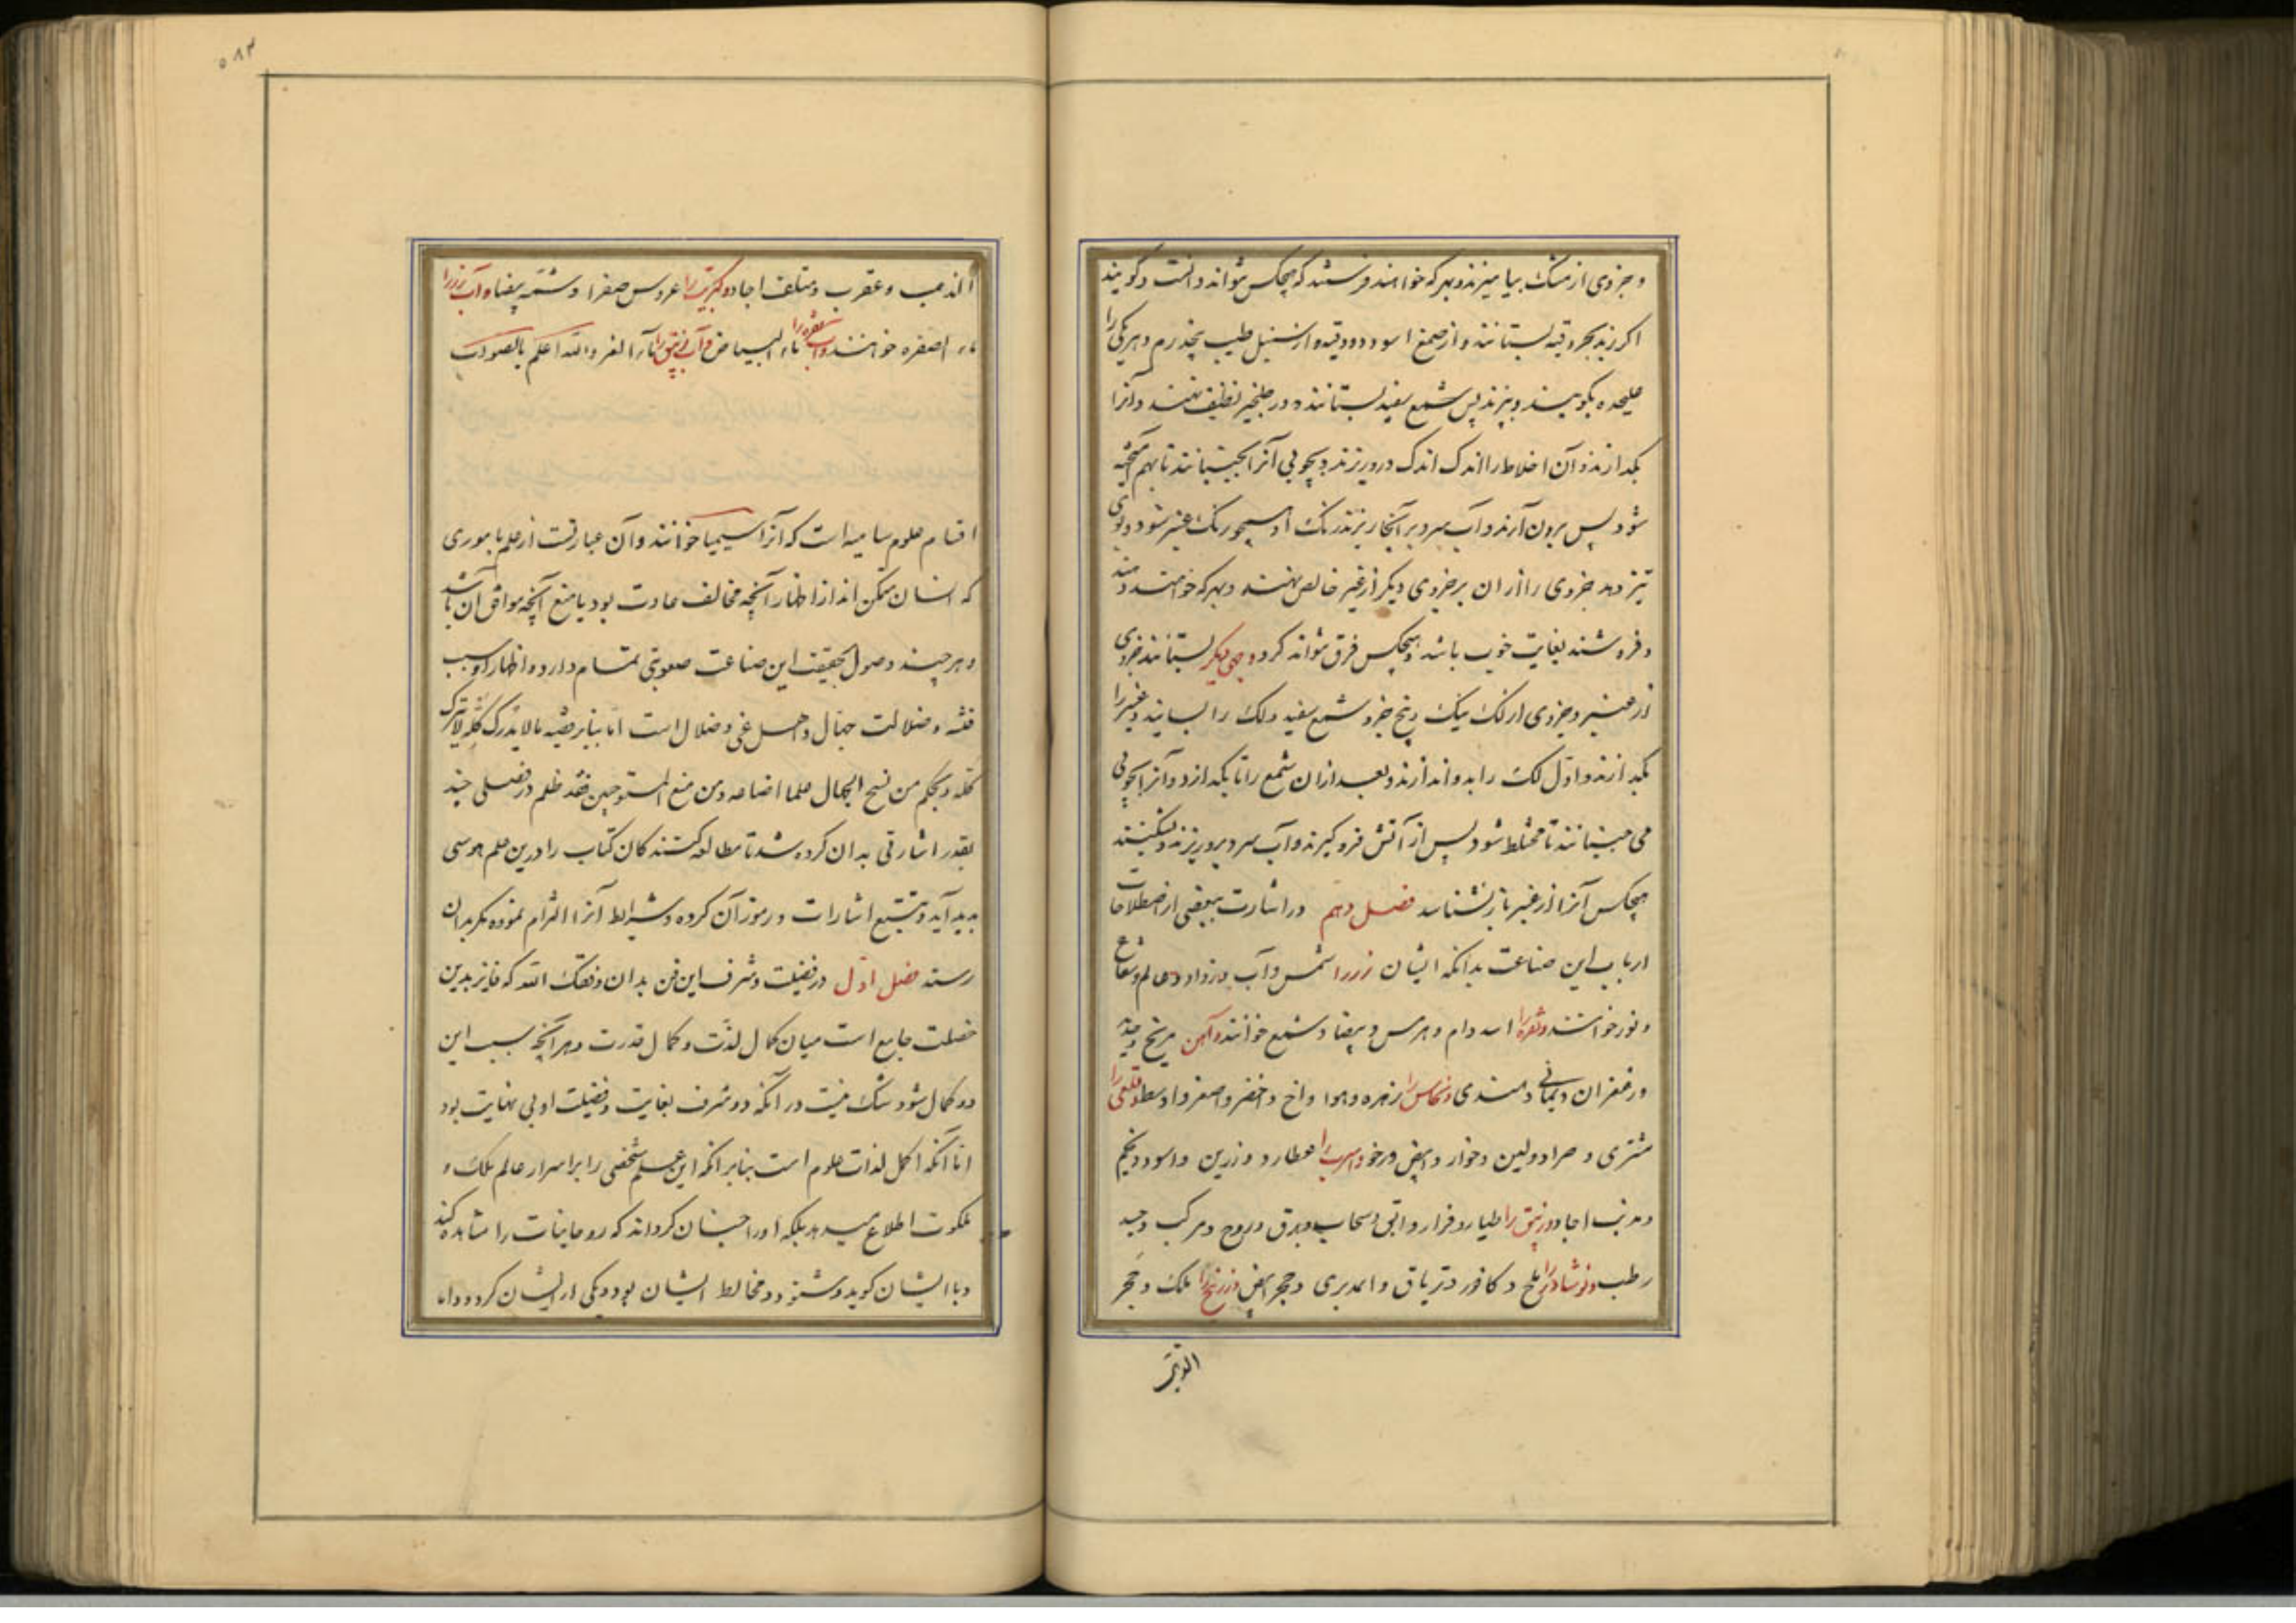 و جزوی از مشک بیامیزند و بهر که خواهند فرستند که هیچکس نتواند دانست و گویند
اکر زبد بحر وقیه بستانند و از صمغ اسود دو وقیه و از سنبل طیب پنجدرم و هر یکی را
علیحده بکوبند و ببزند پس شمع سفید بستانند و در طنجیر نظیف نهند و آنرا
بکدازند و آن اخلاط را اندک اندک درو ریزند و بچوبی آنرا بجنبانند تا بهم آمیخته
شود پس برون آرند و آب سرد بر آنجا ریزند رنک او همچو رنک عنبر شود و بوی
تیز دهد جزوی را از ان بر جزوی دیکر از عنبر خالص نهند و بهر که خواهند دهند
و فروشند بغایت خوب باشد و هیچکس فرق نتواند کرد وجهی دیکر بستانند جزوی
از عنبر و جزوی از لک نیک و پنج جزو شمع سفید و لک را بسایند و عنبر را
بکدازند و اول لک را بدو اندازند و بعد از ان شمع را تا بکدازد و آنرا بچوبی
می جنبانند تا مختلط شود پس از آتش فرو کیرند و آب سرد برو ریزند و بشکنند
هیچکس آنرا از عنبر باز نشناسد فصل دهم در اشارت ببعضی از اصطلاحات
ارباب این صناعت بدانکه ایشان زر را شمس و آب و عالم و شعاع
و نور خوانند و نقره را اسد و ام و هرمس و بیضا و شمع خوانند و آهن مریخ
و زعفران و یمانی و هندی و نحاس را زهره و هوا و اخ و اخضر و اصفر و اوسط و قلعی را
مشتری و لین و خوار و ابیض و رخو و اسرب را عطارد و زرین و اسود
اجساد و زیبق را طیار و فرار و ابق و سحاب و برق و روح و مرکب
رطب و نوشادر را ملح و کافور و تریاق و حجر ابیض و زرنیخ را ملک و حجر
الذهب و عقرب و متلف اجساد و کبریت را عروس صفرا و بیضا و آب زر را
ماء اصفره خوانند و آب نقره را ماء البیاض و آب زیبق را والله اعلم بالصواب
اقسام علوم است که آنرا سیمیا خوانند و آن عبارتست از علم باموری
که انسان متمکن از اظهار آنچه مخالف عادت بود یا منع آنچه موافق آن باشد
و هر چند وصول بحقیقت این صناعت صعوبتی تمام دارد و اظهار او سبب
فتنه و ضلالت جهال و اهل غی و ضلال است اما بنابر قضیه مالا یدرک کله لا یترک
کله و بحکم من منح الجهال علما اضاعه و من منع المستوجبین فقد ظلم در فصلی چند
بقدر اشارتی بدان کرده شد تا مطالعه کنندکان کتاب را درین علم هوسی
پدید آید و بتتبع اشارات و رموز آن کرده و شرایط آنرا التزام نموده مکر بدان
رسند فصل اول در فضیلت و شرف این فن بدان وفقک الله که فایز بدین
خصلت جامع است میان کمال لذت و کمال قدرت و هر آنچه سبب این
دو کمال شود شک نیست در آنکه شرف بغایت و فضیلت او بی نهایت بود
اما آنکه اکمل لذات علوم است بنابر انکه این علم شخص را بر اسرار عالم ملک و
ملکوت اطلاع میدهد بلکه او را چنان کرداند که روحانیات را مشاهده کند
و با ایشان کوید و شنود و مخالط ایشان بود و یکی از ایشان کردد و اما